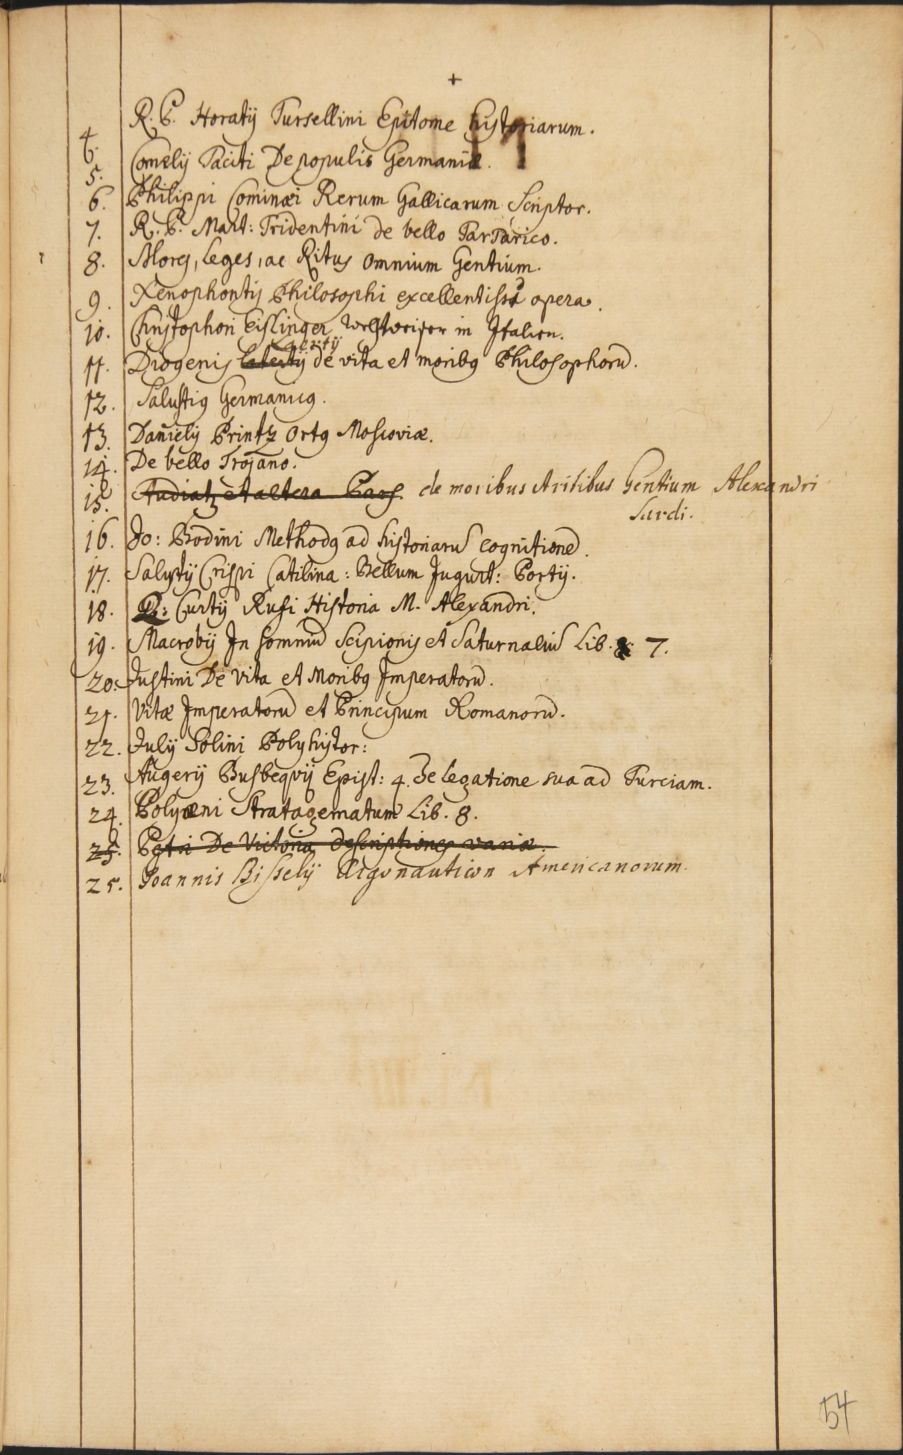 +
R. P. Horatij Tursellini Epitome historiarum.
4
6. Cornelij Taciti De populis Germaniæ.
5.
6. Philippi Cominæi Rerum Gallicarum Scriptor.
7. R. P. Mart: Tridentini de bello Tartarico.
8. Mores, leges, ac Ritus omnium Gentium.
9. Xenophontis Philosophi excellentissi opera.
10. Christophori in Italien.
11. Diogenis Laertij de vita et moribq Philosophorū.
12. Salustiq Germanicq.
13. Danielis Printz Ortq Moscoviæ.
14. De bello Trojano.
15. Audiatz et altera Pars. de moribus et ritibus Gentium Alexandri
Sardi.
16. Jo: Bodini Methodq ad historiarū cognitionē.
17. Salustij Crispi Catilina: Bellum Jugurt: Portij.
18. Q: Curtij Rufi Historia M. Alexandri.
19. Macrobij In somniū Scipionis et Saturnaliū Lib. 7.
20. Justini De vita et Moribq Imperatorū.
21. Vitæ Imperatorū et Principum Romanorū.
22. Julij Solini Polyhistor:
23. Augerij Busbeqvij Epist: 4. De legatione sua ad Turciam.
24. Polyæni Stratagematum Lib. 8.
25. De Victoria descriptiones variæ.
25. Joannis Bisselij Argonauticon Americanorum.
54